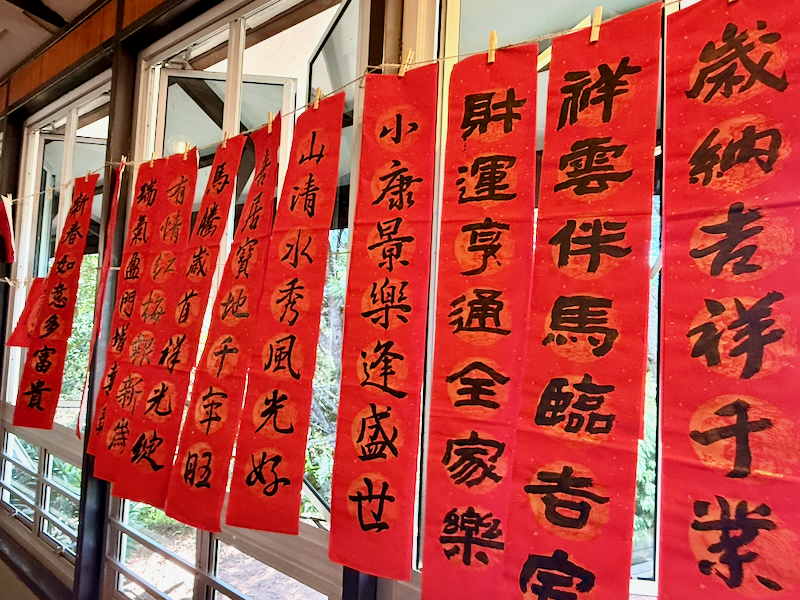 歲納吉祥千業
祥雲伴馬臨吉
財運亨通全家樂
小康景樂逢盛世
山清水秀風光好
喜居寶地千年旺
馬騰歲首祥光綻
有情紅梅報新歲
瑞氣盈門增
新春如意多富貴